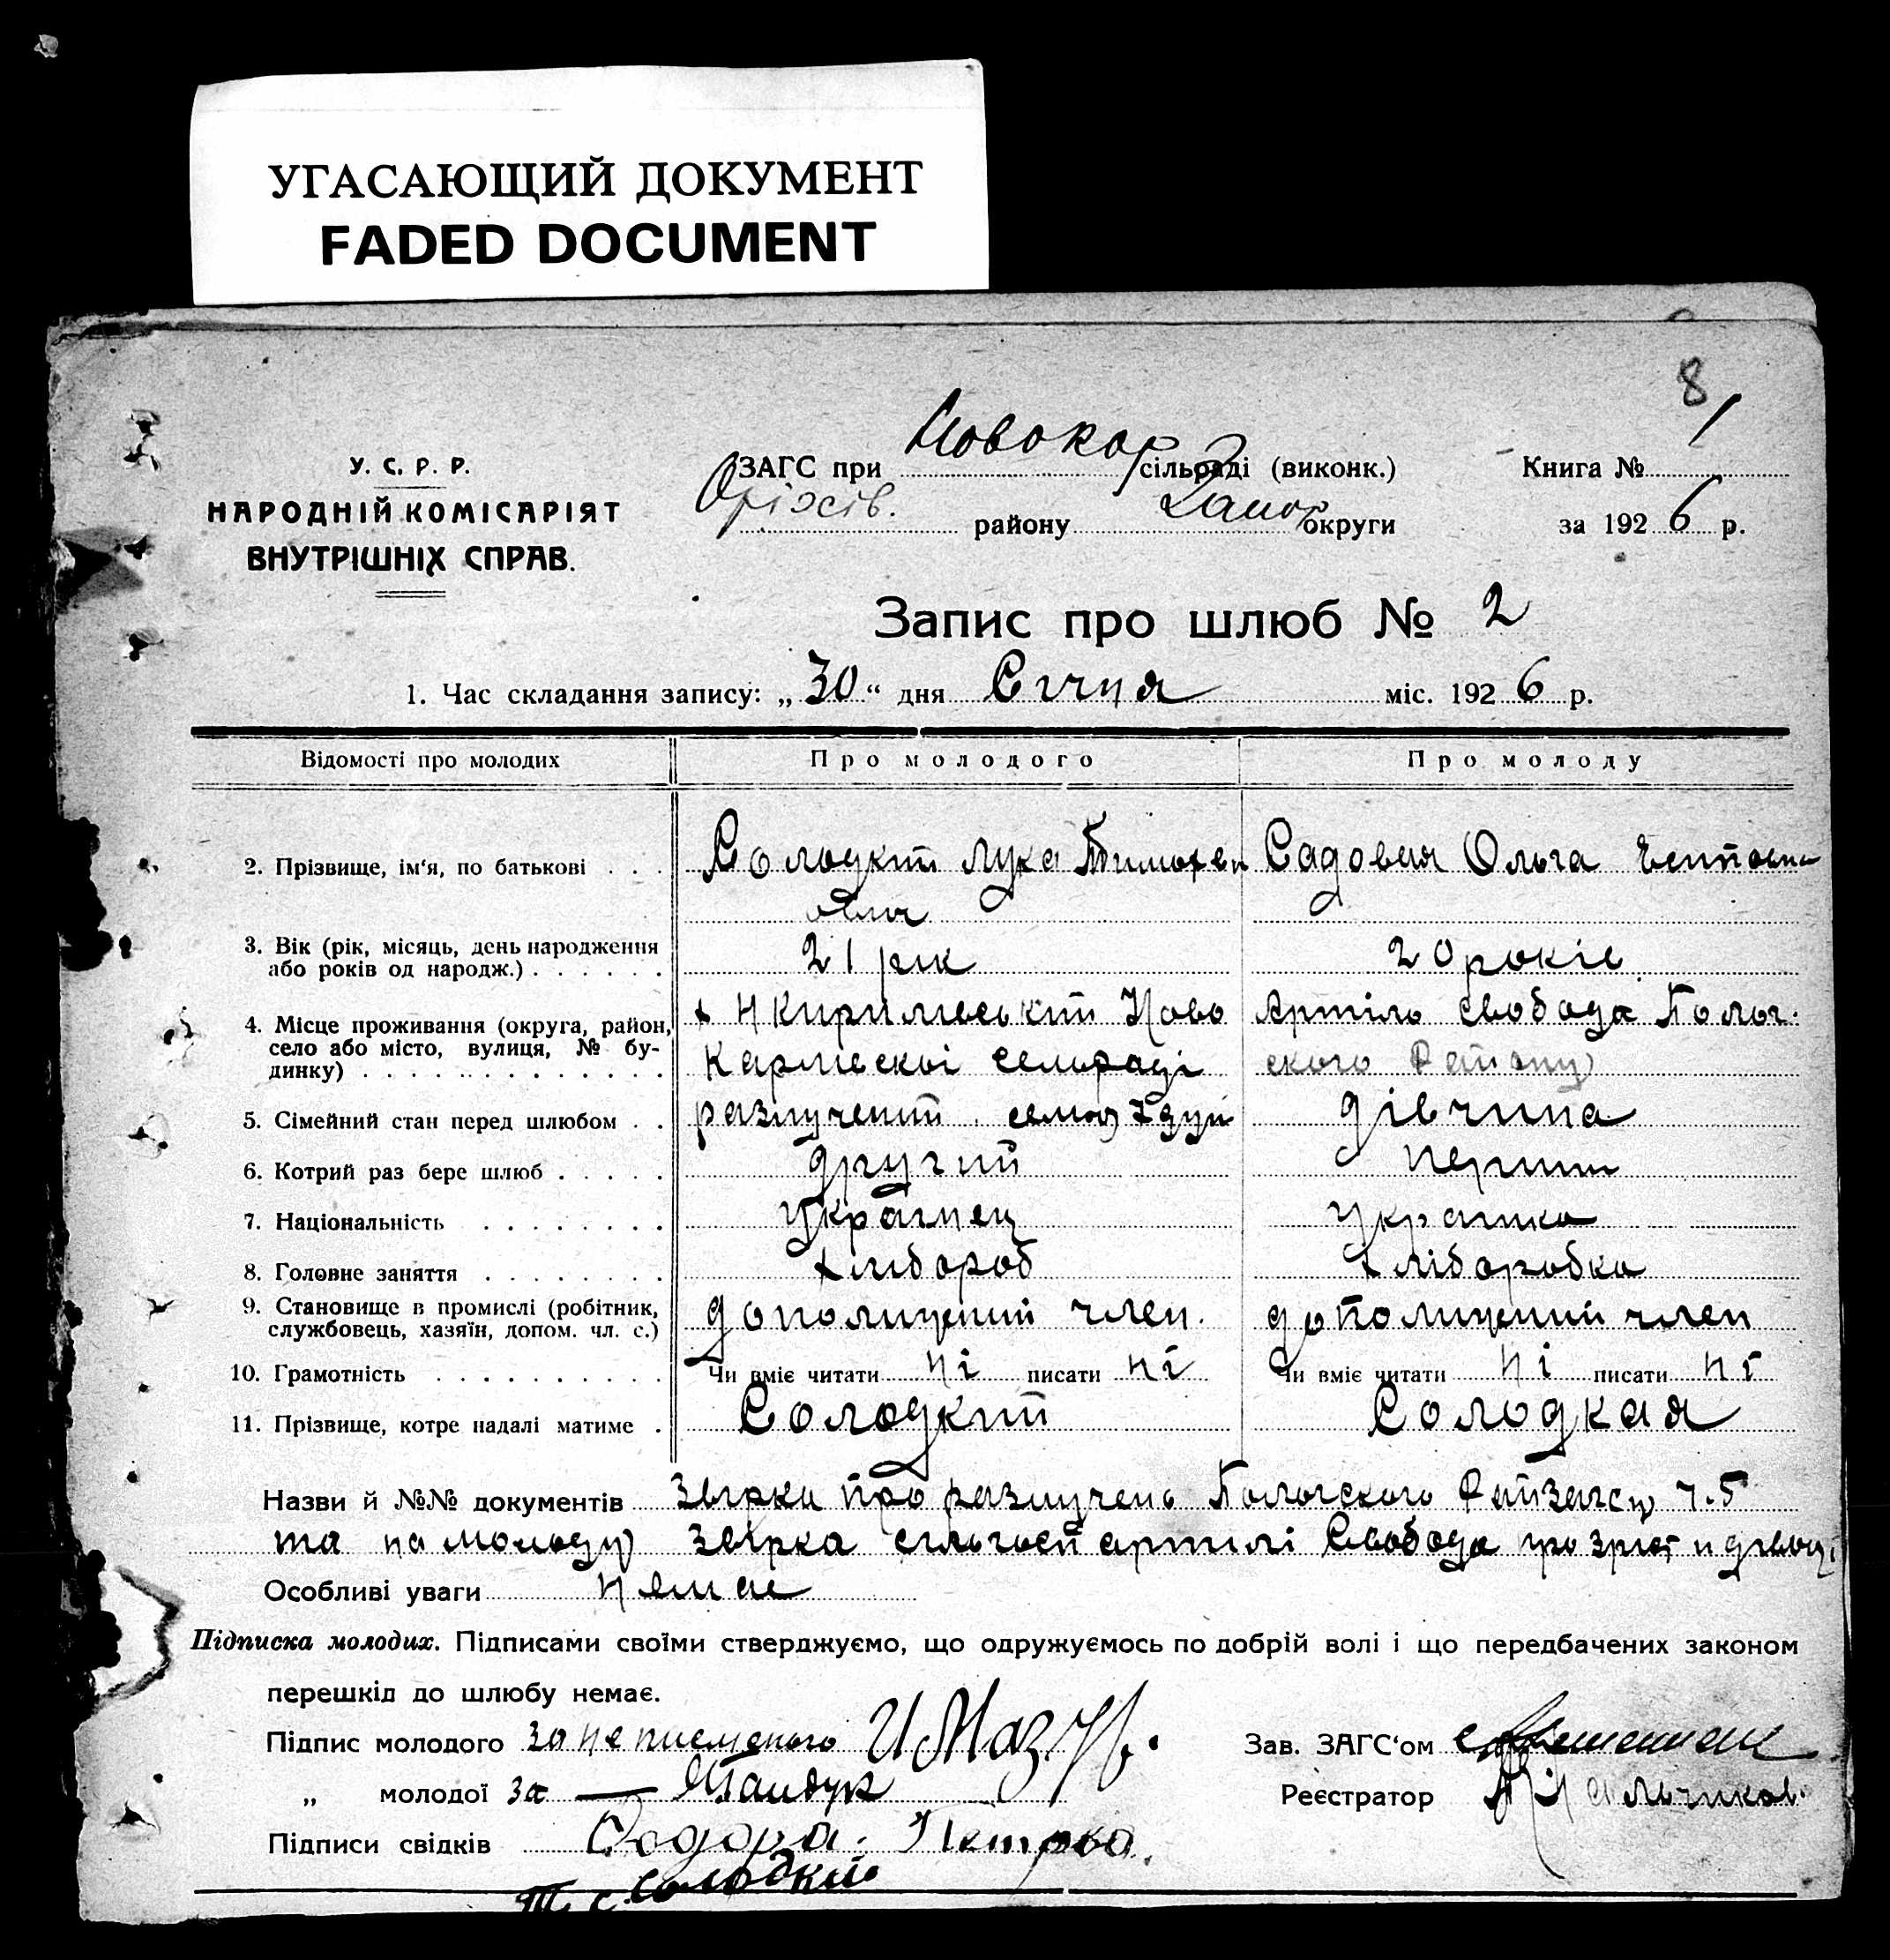 УГАСАЮЩИЙ ДОКУМЕНТ
FADED DOCUMENT
8
У. С. Р. Р.
НАРОДНІЙ КОМІСАРІЯТ
ВНУТРІШНІХ СПРАВ.
ЗАГС при Новокар сільраді (виконк.) Книга № 1
Оріхів. району Запор округи за 1926 р.
Запис про шлюб № 2
1. Час складання запису: „30“ дня Січня міс. 1926 р.
Відомості про молодих Про молодого Про молоду
2. Прізвище, ім'я, по батькові . . . Солодкий Лука Тимофеи Садовая Ольга
ович
3. Вік (рік, місяць, день народження
або років од народж.) . . . . . . 21 рік 20 років
4. Місце проживання (округа, район,
село або місто, вулиця, № бу-
динку) . . . . . . . . . . . . . х Н Кирилівський Ново Артіль Свобода Полог.
Карлівскоі сельраді ского Району
5. Сімейний стан перед шлюбом . . разлучений . дівчина
6. Котрий раз бере шлюб . . . . . другий перший
7. Національність . . . . . . . . Українец Украінка
8. Головне заняття . . . . . . . . хлібороб хліборобка
9. Становище в промислі (робітник,
службовець, хазяїн, допом. чл. с.) допомічний член. допомічний член
10. Грамотність . . . . . . . . . . Чи вміє читати ні писати ні Чи вміє читати ні писати ні
11. Прізвище, котре надалі матиме . Солодкий Солодкая
Назви й №№ документів звірки про разлучень Пологского Райзагсу ч. 5
та на молоду звірка артілі Свобода про зріст
Особливі уваги немає
Підписка молодих. Підписами своїми стверджуємо, що одружуємось по добрій волі і що передбачених законом
перешкід до шлюбу немає.
Підпис молодого за неписьменого И Мазур. Зав. ЗАГС'ом
„ молодої за — Реєстратор
Підписи свідків Федора Петрова.
Т. С. Солодкий